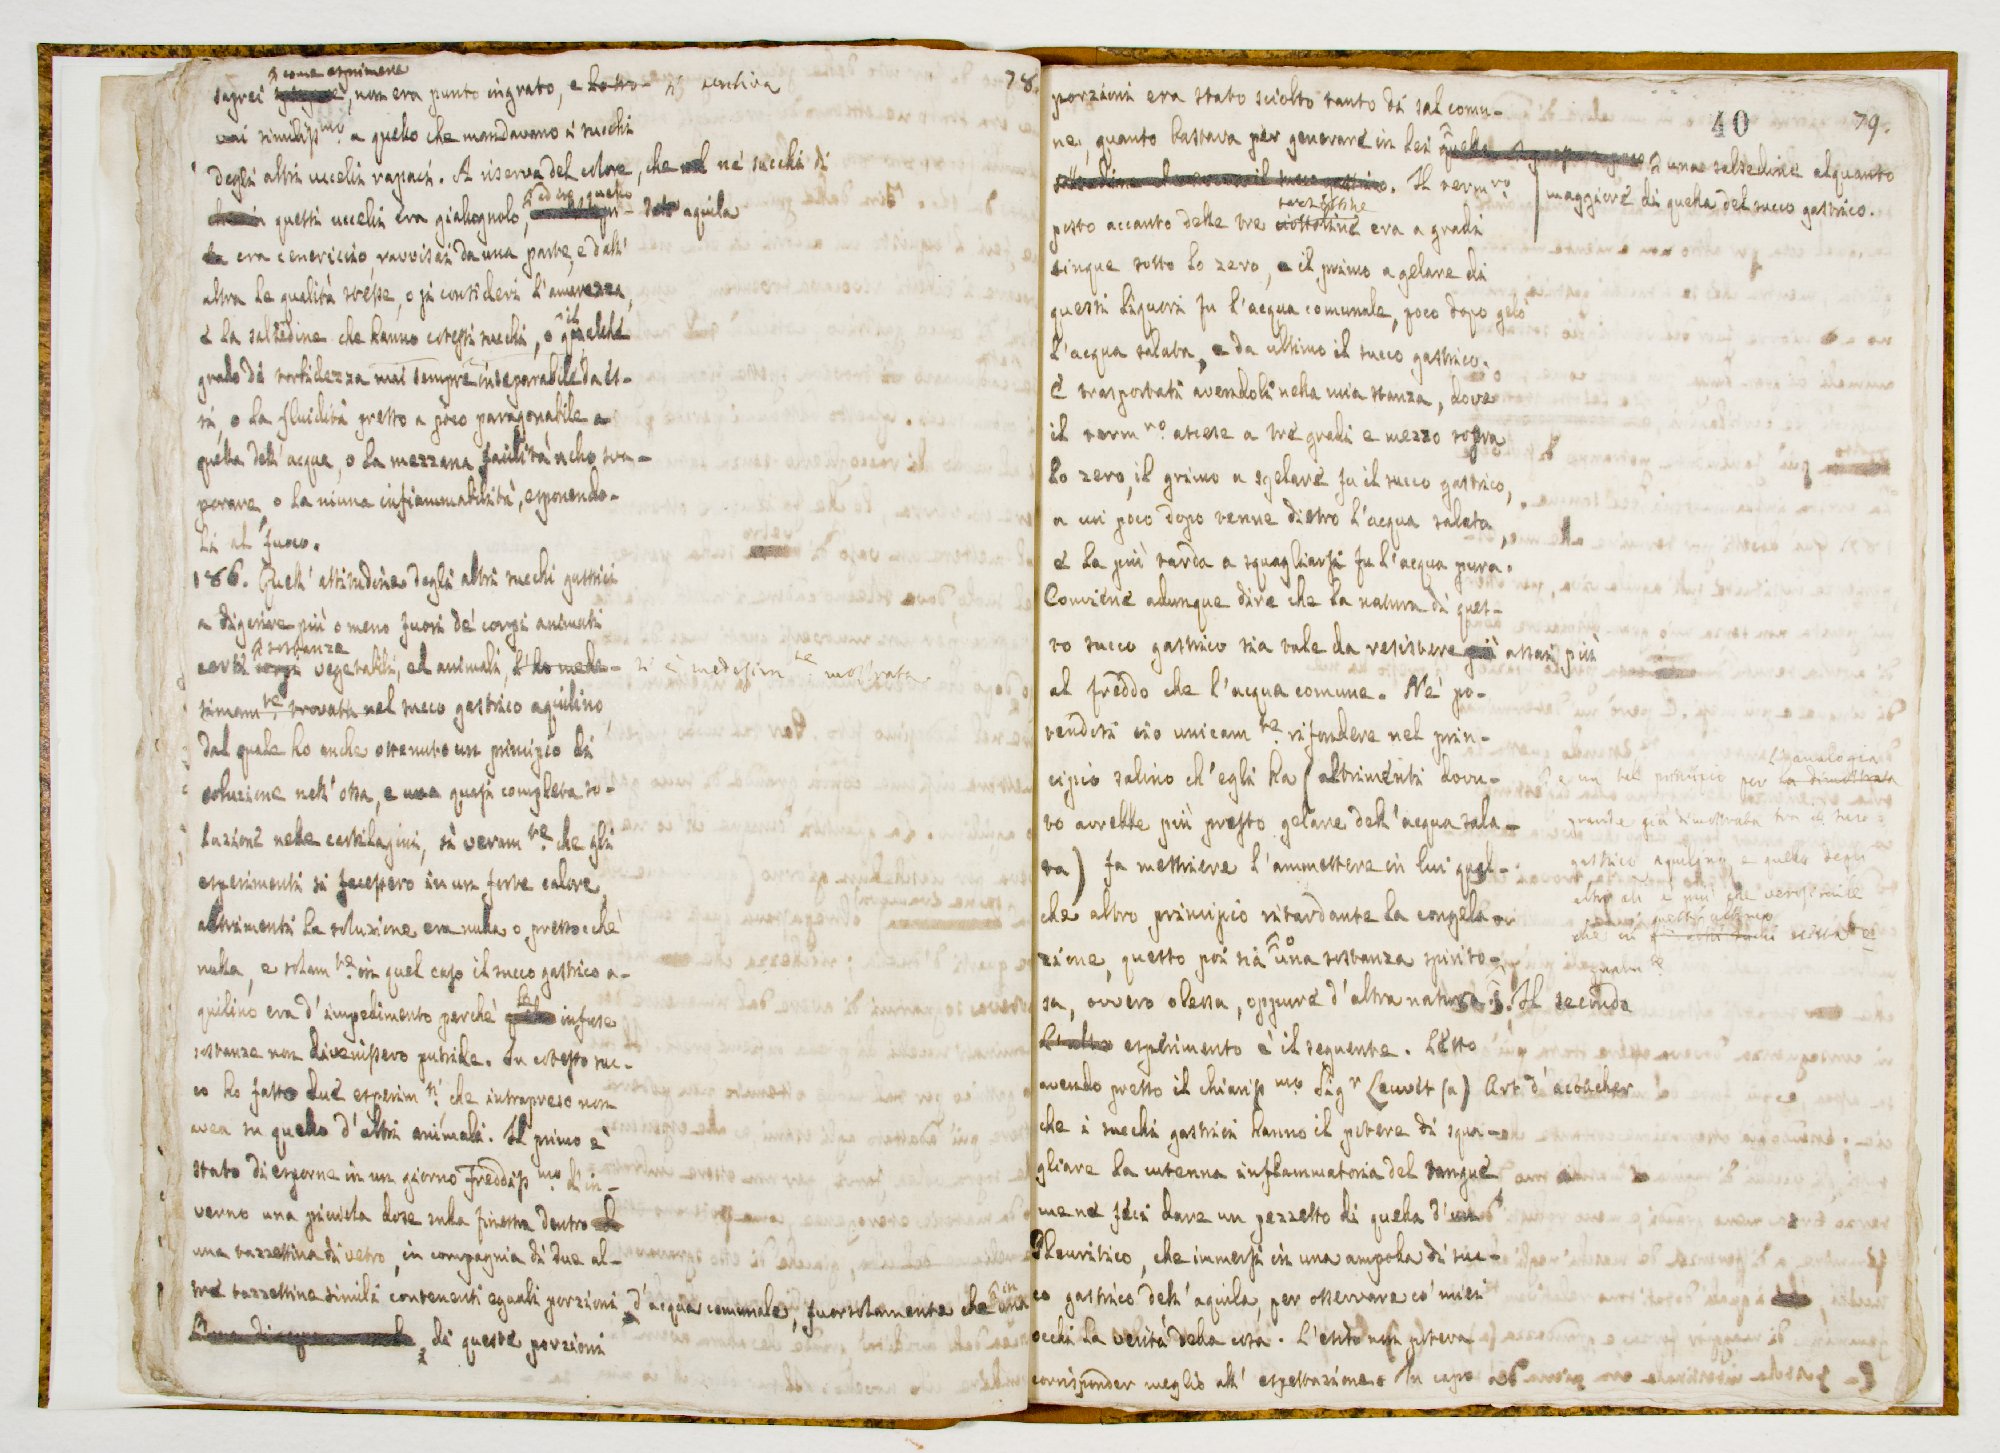 78.
come esprimere
saprei, non era punto ingrato, e si sentiva
similiss.mo a quello che mandavano i succhi
degli altri uccelli rapaci. A riserva del colore, che ne' succhi di
questi uccelli era giallognolo, aquila
era cenericcio, ravvisai da una parte, e dall'
altra le qualità stesse, o si consideri l'amarezza,
e la salsedine che hanno cotesti succhi, o il
grado di torbidezza mai sempre inseparabile da es-
si, o la fluidità presso a poco paragonabile a
quella dell'acqua, o la mezzana facilità allo sva-
porare, o la niuna infiammabilità, esponendo-
li al fuoco.
186. Quell'attitudine degli altri succhi gastrici
a digerire più o meno fuori de' corpi animati
sostanze
certi corpi vegetabili, ed animali, l'ho mede- si è medesim.te mostrata
simam.te trovata nel succo gastrico aquilino,
dal quale ho anche ottenuto un principio di
soluzione nell'ossa, e una quasi completa so-
luzione nelle cartilagini, sì veram.te che gli
esperimenti si facessero in un forte calore,
altrimenti la soluzione era nulla o pressochè
nulla, e solam.te in quel caso il succo gastrico a-
quilino era d'impedimento perchè le infuse
sostanze non divenissero putride. In cotesto suc-
co ho fatto due esperim.ti che intrapreso non
avea su quello d'altri animali. Il primo è
stato di esporne in un giorno freddiss.mo di in-
verno una piccola dose sulla finestra dentro
una tazzettina di vetro, in compagnia di due al-
tre tazzettine simili contenenti eguali porzioni d'acqua comunale, fuorsolamente che in una
di queste porzioni
40 79.
porzioni era stato sciolto tanto di sal comu-
ne, quanto bastava per generare in lei una salsedine alquanto
maggiore di quella del succo gastrico.
Il term.ro
tazzettine
posto accanto delle tre ciottoline era a gradi
cinque sotto lo zero, e il primo a gelare di
questi liquori fu l'acqua comunale, poco dopo gelò
l'acqua salata, e da ultimo il succo gastrico.
E trasportati avendoli nella mia stanza, dove
il term.ro ascese a tre gradi e mezzo sopra
lo zero, il primo a sgelare fu il succo gastrico,
a un poco dopo venne dietro l'acqua salata,
e la più tarda a squagliarsi fu l'acqua pura.
Conviene adunque dire che la natura di ques-
to succo gastrico sia tale da resistere assai più
al freddo che l'acqua comune. Nè po-
tendosi ciò unicam.te rifondere nel prin-
cipio salino ch'egli ha (altrimenti dovu-
to avrebbe più presto gelare dell'acqua sala-
ta) fa mestiere l'ammettere in lui qual-
che altro principio ritardante la congela-
zione, questo poi sia o una sostanza spirito-
sa, ovvero oleosa, oppure d'altra natura. Il secondo
e un tal principio per l'analogia
grande già dimostrata tra il succo
gastrico aquilino e quello degli
altri è più che verisimile
che in
esperimento è il seguente. Letto
avendo presso il chiariss.mo Sig.r Leuvet (a) Art d'accoucher
che i succhi gastrici hanno il potere di squa-
gliare la cotenna inflammatoria del sangue
me ne feci dare un pezzetto di quella d'un
Pleuritico, che immersi in una ampolla di suc-
co gastrico dell'aquila, per osservare co' miei
occhi la verità della cosa. L'esito non poteva
corrisponder meglio all'espettazione. In capo